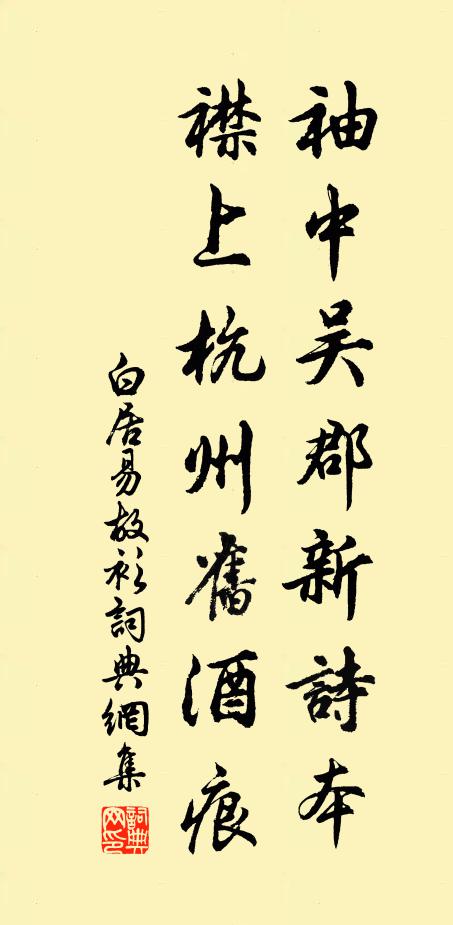 袖中吴郡新詩本
襟上杭州舊酒痕
白居易故衫詞典網集
詞典网印